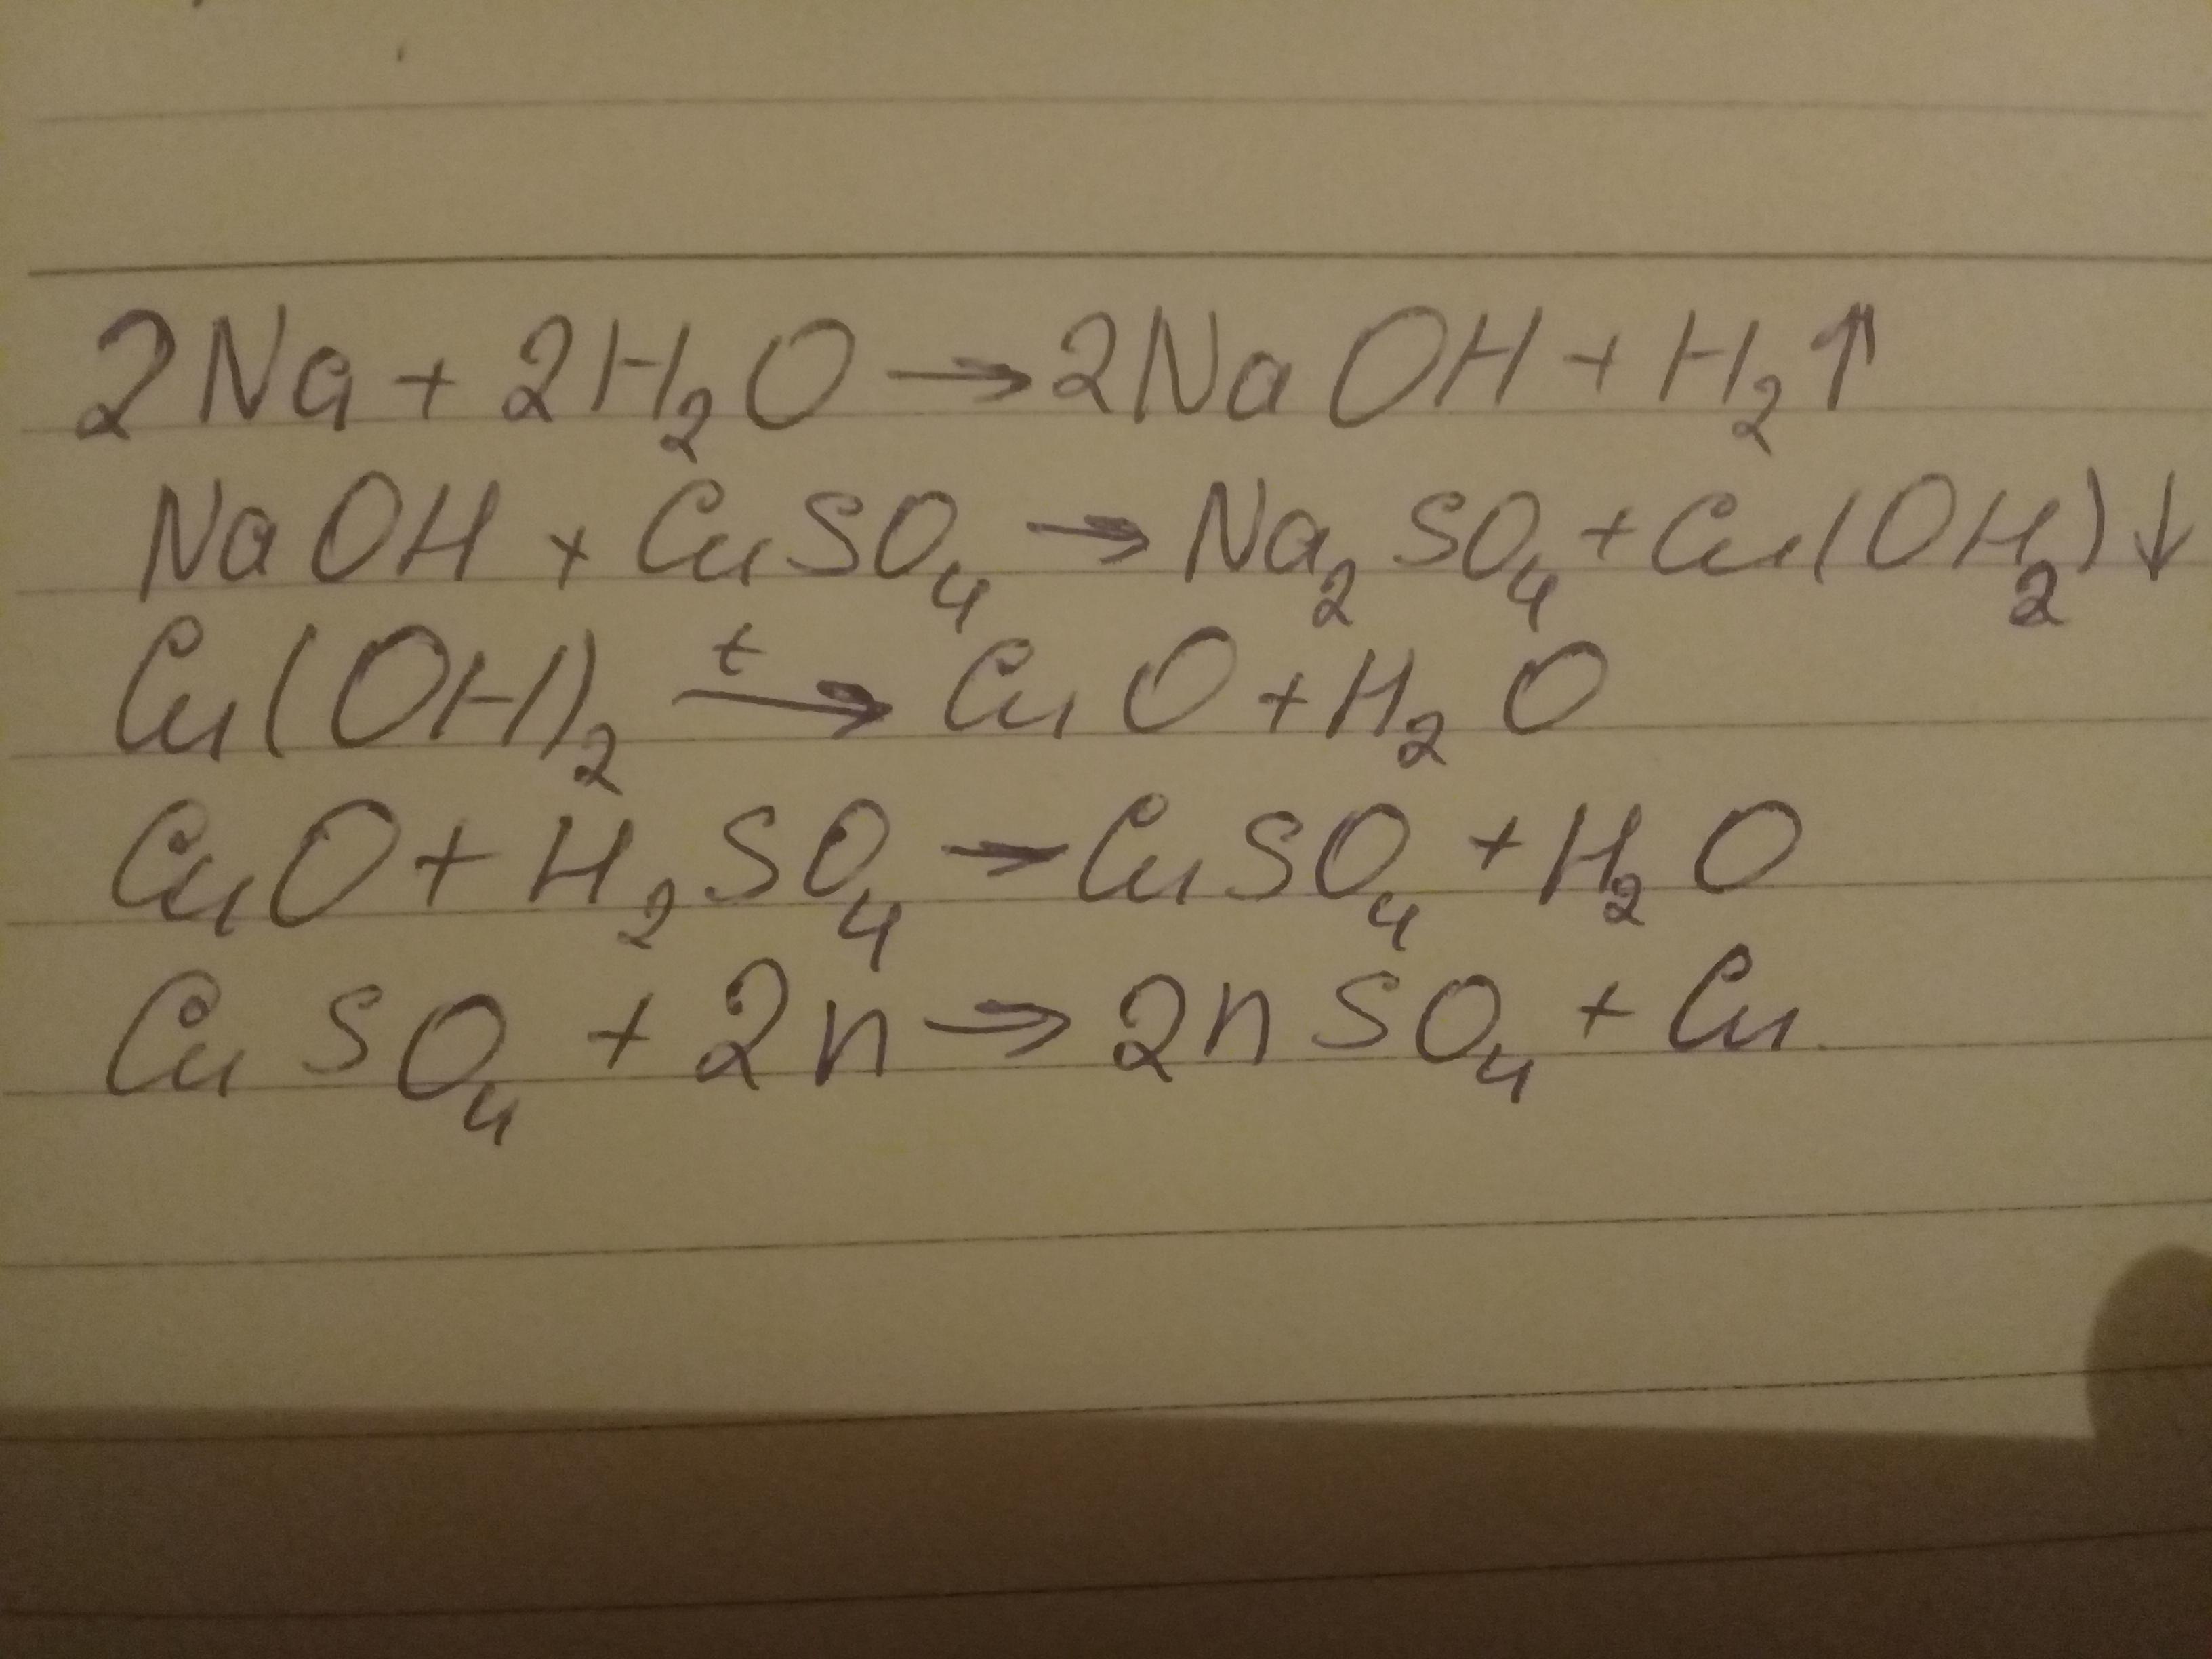 2Na + 2H₂O → 2NaOH + H₂↑
NaOH + CuSO₄ → Na₂SO₄ + Cu(OH₂)↓
Cu(OH)₂ t→ CuO + H₂O
CuO + H₂SO₄ → CuSO₄ + H₂O
CuSO₄ + Zn → ZnSO₄ + Cu